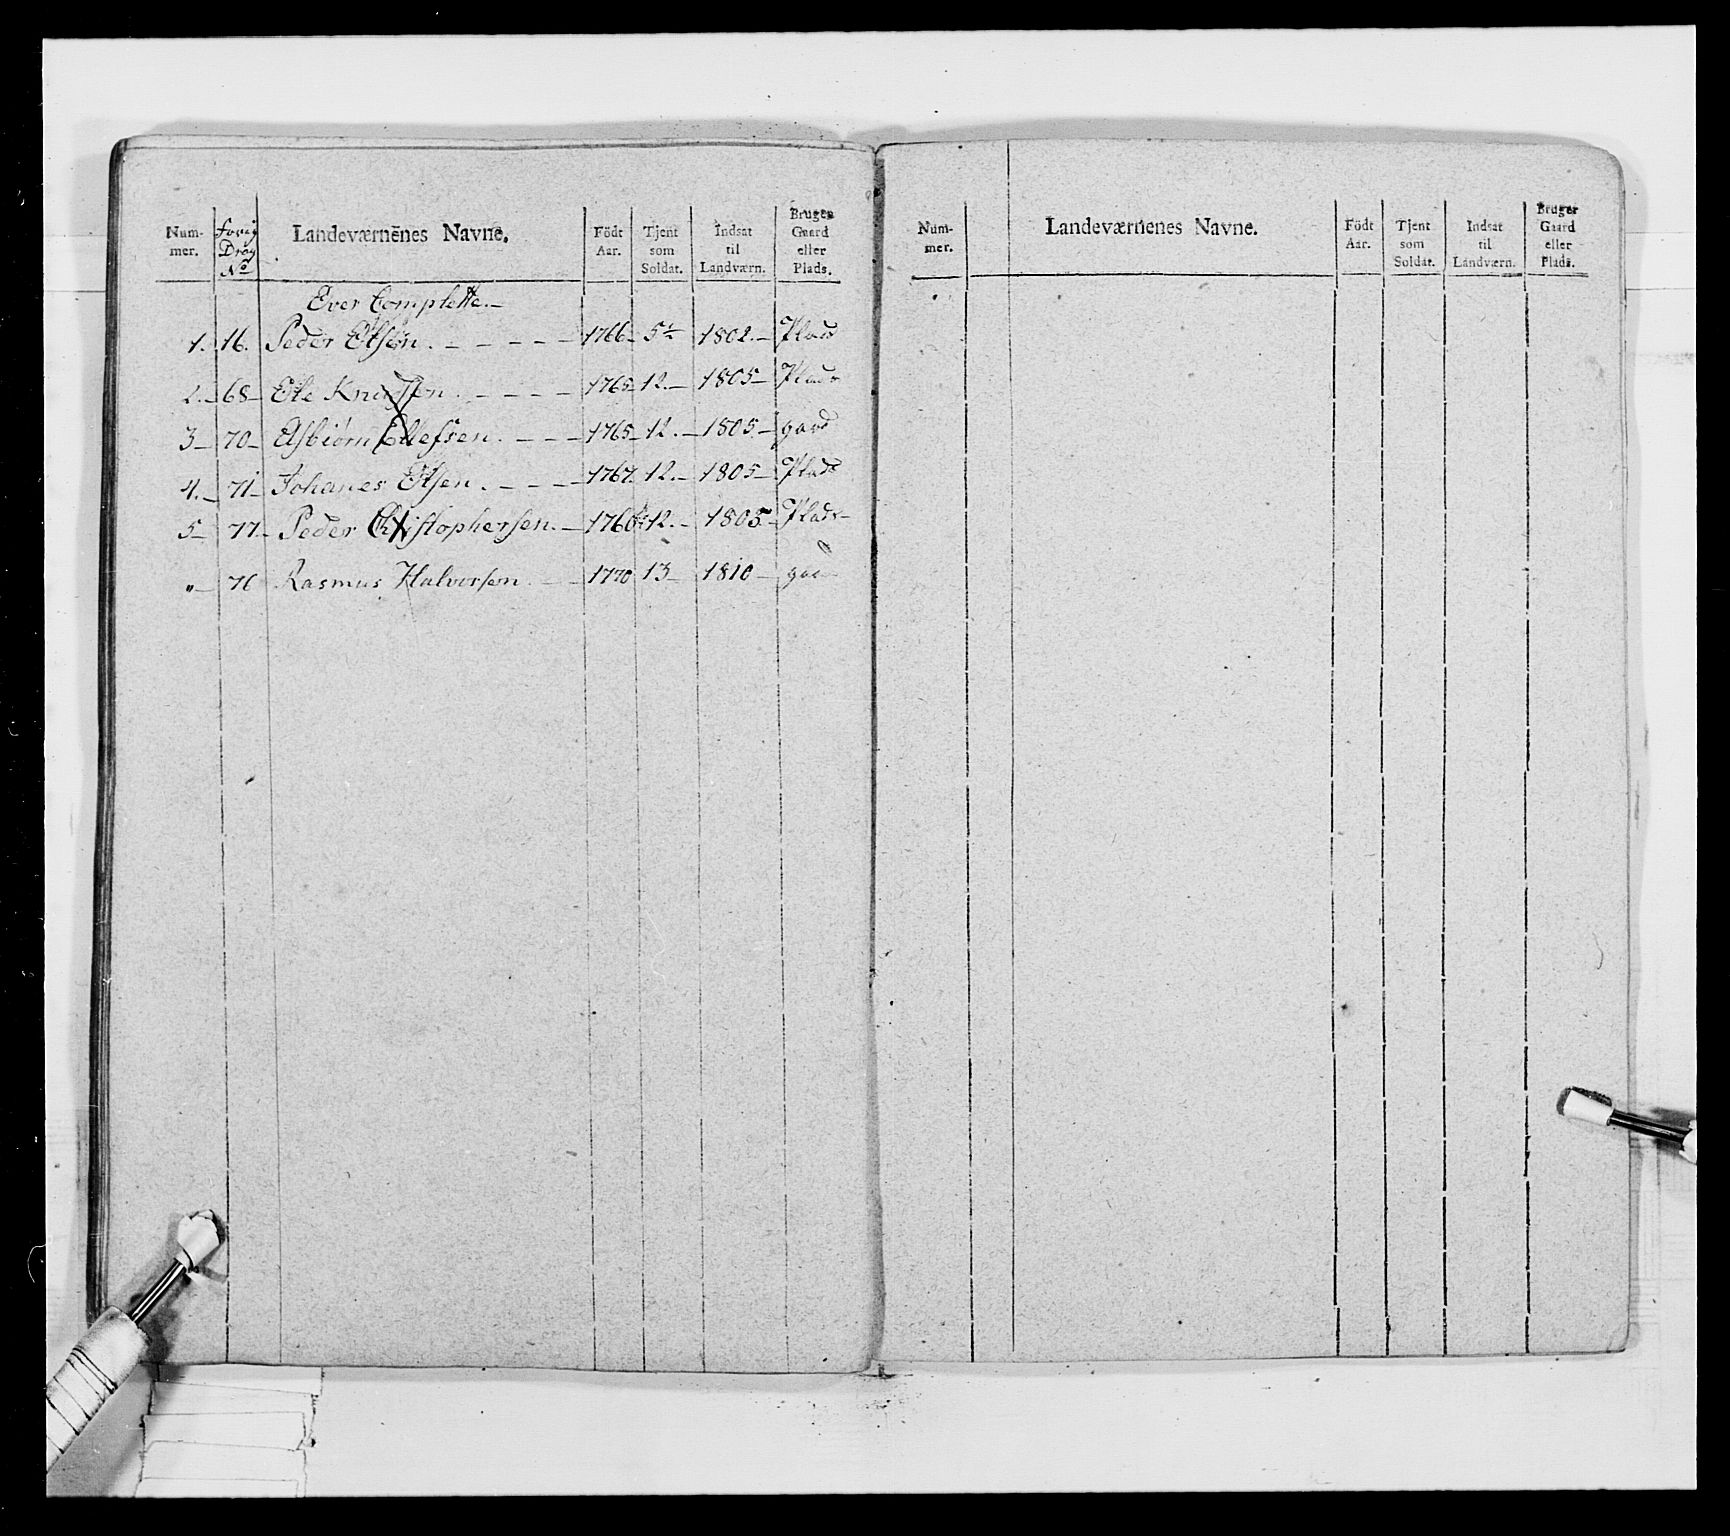 Num-mer. Forrig Drag No Landeværnenes Navne. Födt Aar. Tjent som Soldat. Indsat til Landværn. Bruger Gaard eller Plads.
Over Complette.
1. 16. Peder Olsen. 1766 5 1802. Plads
2. 68 Ole Knudsen. 1765 12. 1805 Plads
3 70 Asbiörn Ellefsen. 1765 12. 1805 gard
4. 71 Johanes Olsen. 1767. 12. 1805 Plads
5 77. Peder Christophersen. 1766 12. 1805 Plads
" 76 Rasmus Halvorsen. 1770 13 1810
Num-mer. Landeværnenes Navne. Födt Aar. Tjent som Soldat. Indsat til Landværn. Bruger Gaard eller Plads.